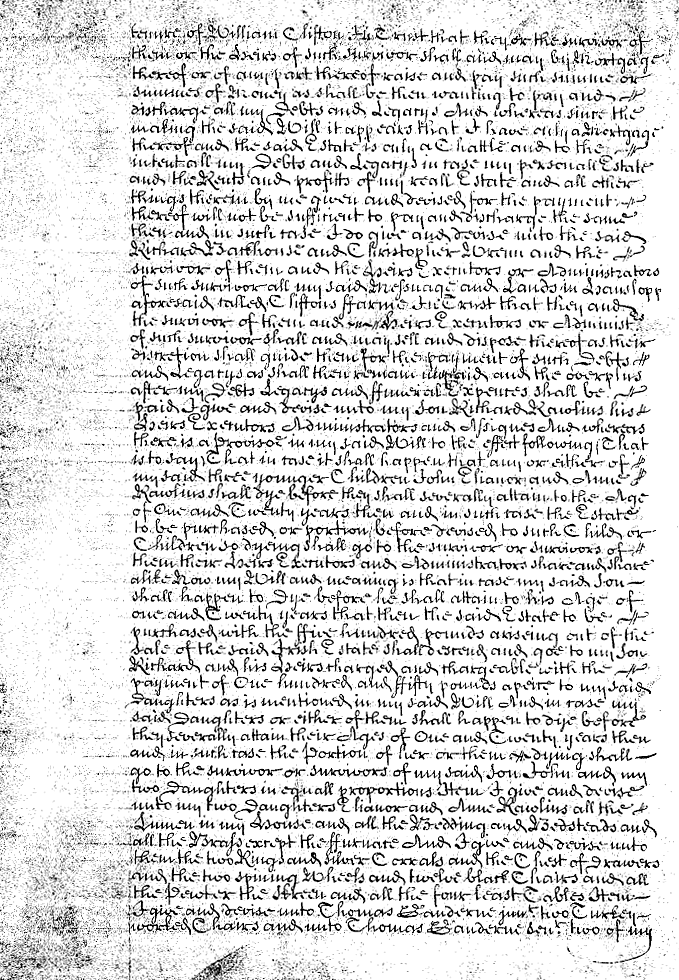 tenure of William Clifton In Trust that they or the survivor of
them or the Heirs of such survivor shall and may by Mortgage
thereof or of any part thereof raise and pay such summe or
summes of Money as shall be then wanting to pay and
discharge all my Debts and Legacys And whereas since the
making the said Will it appears that I have only a Mortgage
thereof and the said Estate is only a Chattle and to the
intent all my Debts and Legacys in case my personall Estate
and the Rents and profitts of my reall Estate and all other
things therein by me given and devised for the payment
thereof will not be sufficient to pay and discharge the same
then and in such case I do give and devise unto the said
Richard Backhouse and Christopher Wrenn and the
survivor of them and the Heirs Executors or Administrators
of such survivor all my said Messuage and Lands in
aforesaid called Cliftons ffarme In Trust that they and
the survivor of them and Heirs Executors or Administ.rs
of such survivor shall and may sell and dispose thereof as their
discretion shall guide them for the payment of such Debts
and Legacys as shall then remain unpaid and the overplus
after my Debts Legacys and ffunerall Expences shall be
paid I give and devise unto my son Richard Rawlins his
Heirs Executors Administrators and Assignes And whereas
there is a Provisoe in my said Will to the effect following (That
is to say) That in case it shall happen that any or either of
my said three younger Children John Elianor and Anne
Rawlins shall dye before they shall severally attain to the Age
of One and Twenty years then and in such case the Estate
to be purchased or portion before devised to such Child or
Children so dyeing shall go to the survivor or survivors of
them their Heirs Executors and Administrators share and share
alike Now my Will and meaning is that in case my said Son
shall happen to Dye before he shall attain to his Age of
one and Twenty years that then the said Estate to be
purchased with the ffive hundred pounds ariseing out of the
sale of the said Irish Estate shall descend and goe to my Son
Richard and his Heirs charged and chargeable with the
payment of One hundred and ffifty pounds apeice to my said
Daughters as is mentioned in my said Will And in case my
said Daughters or either of them shall happen to dye before
they severally attain their Ages of One and Twenty years then
and in such case the Portion of her or them dying shall
go to the survivor or survivors of my said son John and my
two Daughters in equall proportions Item I give and devise
unto my two Daughters Elianor and Anne Rawlins all the
Linnen in my House and all the Bedding and Bedsteads and
all the Brass except the ffurnace And I give and devise unto
them the two Rings and silver Corralls and the Chest of Drawers
and the two spining Wheels and twelve black Chairs and all
the Pewter the Skreen and all the four least Tables Item
I give and devise unto Thomas Ganderne jun.r two Turkey
worked Chairs and unto Thomas Ganderne sen.r two of my